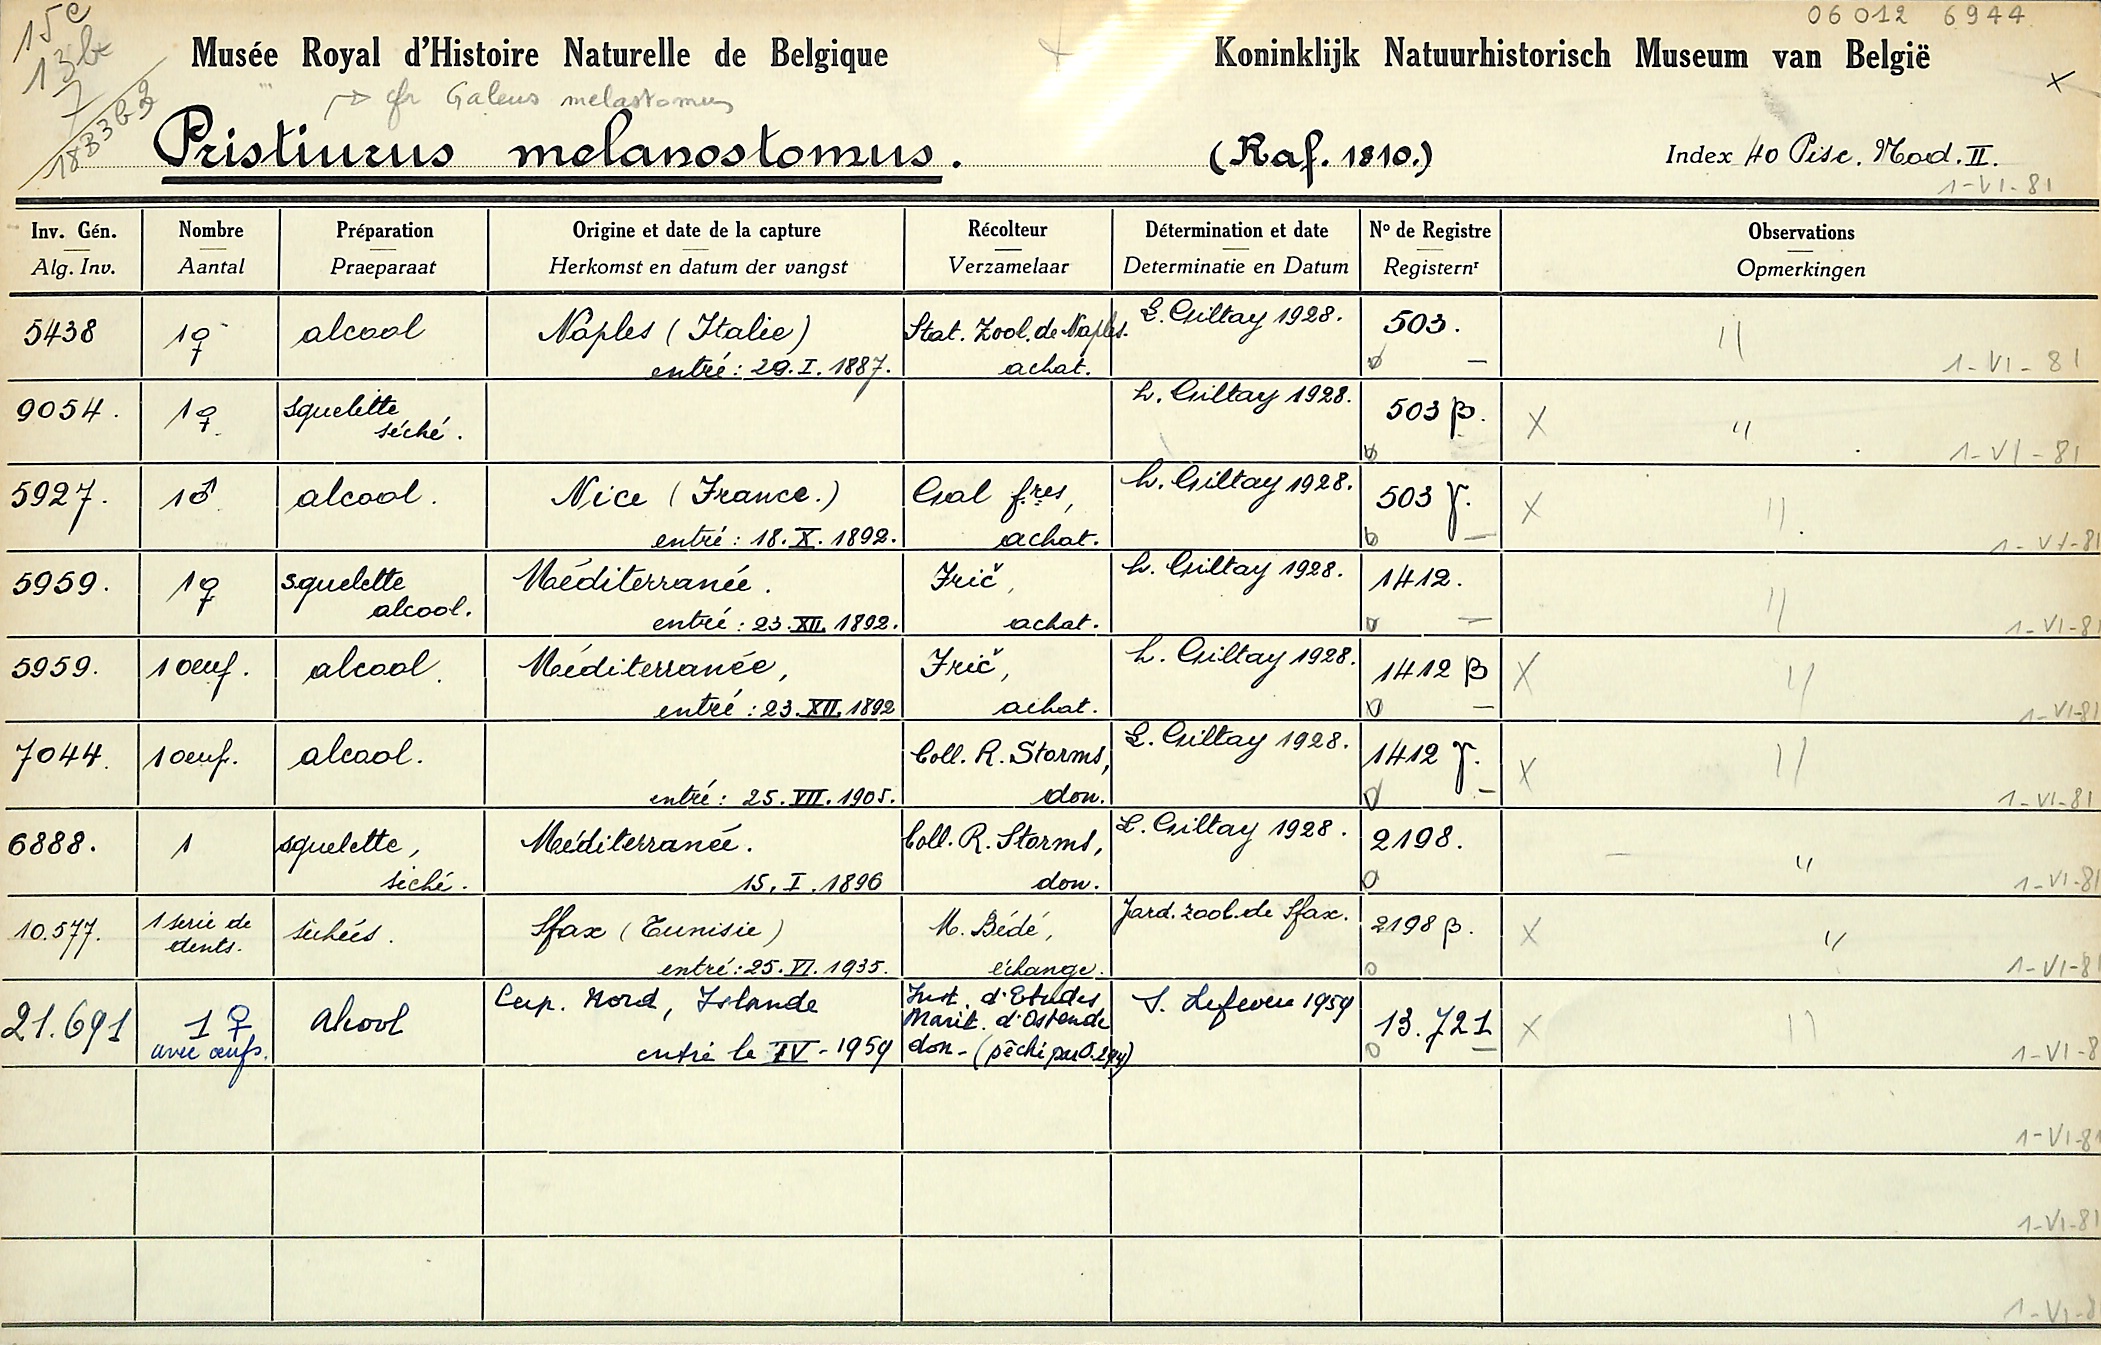 15e
06012 6944
13be
7
1833b3
Musée Royal d'Histoire Naturelle de Belgique
Koninklijk Natuurhistorisch Museum van België
Galeus melastomus
Pristiurus melanostomus.
(Raf. 1810.)
Index 40 Pisc. Mod. II.
1-VI-81
Inv. Gén. Nombre Préparation Origine et date de la capture Récolteur Détermination et date No de Registre Observations
Alg. Inv. Aantal Praeparaat Herkomst en datum der vangst Verzamelaar Determinatie en Datum Registernr Opmerkingen
5438 1♀ alcool Naples (Italie) Stat. Zool. de Naples. L. Giltay 1928. 503. "
entré: 29.I.1887. achat. – 1-VI-81
9054. 1♀ squelette L. Giltay 1928. 503 β. X "
séché. 1-VI-81
5927. 1♂ alcool. Nice (France.) Gal fres, L. Giltay 1928. 503 γ. X "
entré: 18.X.1892. achat. – 1-VI-81
5959. 1♀ squelette Méditerranée. Frič, L. Giltay 1928. 1412. "
alcool. entré: 23.XII.1892. achat. – 1-VI-81
5959. 1 oeuf. alcool. Méditerranée, Frič, L. Giltay 1928. 1412 β X "
entré: 23.XII.1892 achat. – 1-VI-81
7044. 1 oeuf. alcool. Coll. R. Storms, L. Giltay 1928. 1412 γ. X "
entré: 25.VII.1905. don. – 1-VI-81
6888. 1 squelette, Méditerranée. Coll. R. Storms, L. Giltay 1928. 2198. "
séché. 15.I.1896 don. 1-VI-81
10.577. 1 serie de dents. séchées. Sfax (Tunisie) M. Bédé, Jard. zool. de Sfax. 2198 β. X "
entré: 25.VI.1935. échange. 1-VI-81
21.691 1♀ alcool Cap. Nord, Islande Inst. d'Etudes S. Lefevere 1959 13.721 X "
avec œufs. Marit. d'Ostende
entré le IV-1959 don- (pêché par O.294) 1-VI-8
1-VI-81
1-VI-81
1-VI-8